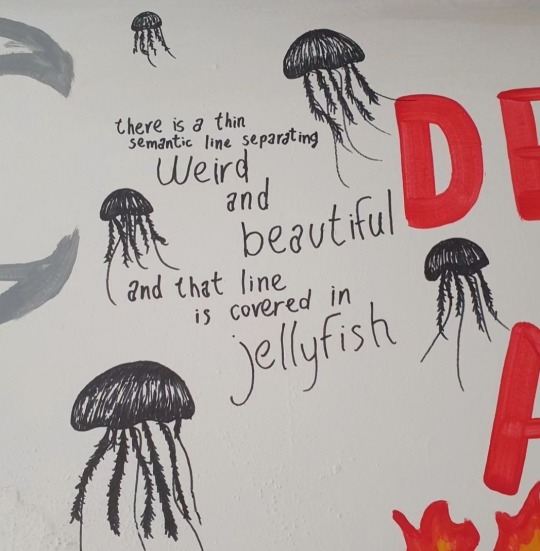 there is a thin
semantic line separating
Weird
and
beautiful
and that line
is covered in
jellyfish
D
A